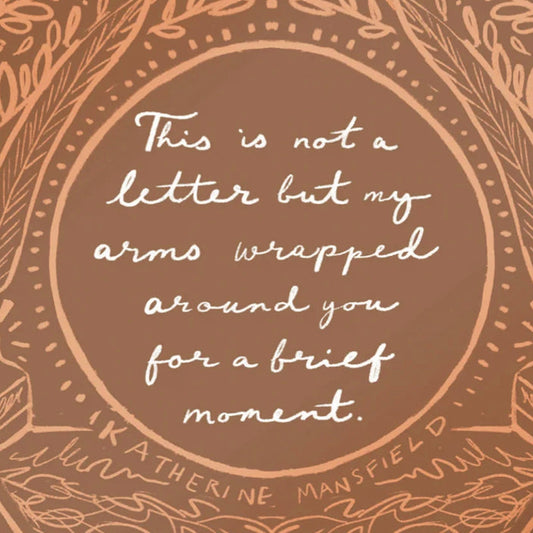 This is not a
letter but my
arms wrapped
around you
for a brief
moment.
KATHERINE MANSFIELD